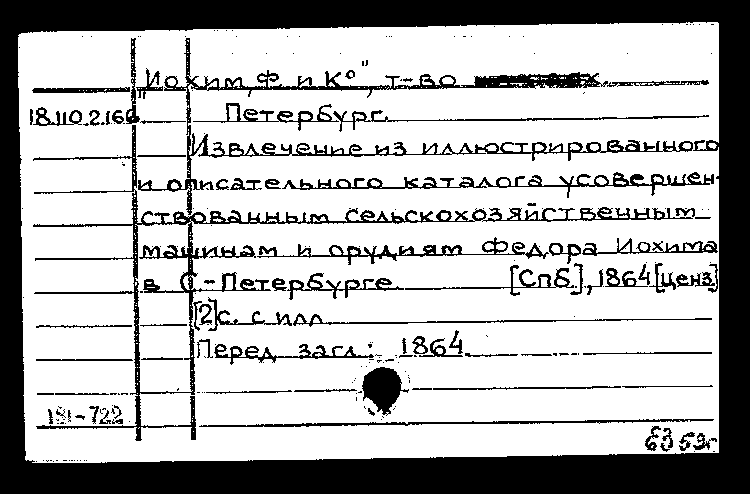 "Иохим, Ф и К°", т-во
18.110.2.166 Петербург.
Извлечение из иллюстрированного
и описательного каталога усовершен-
ствованным сельскохозяйственным
машинам и орудиям Федора Иохима
в С.-Петербурге. [Спб.], 1864 [ценз]
[2]с. с илл.
Перед загл.: 1864.
181-722
бз 59г